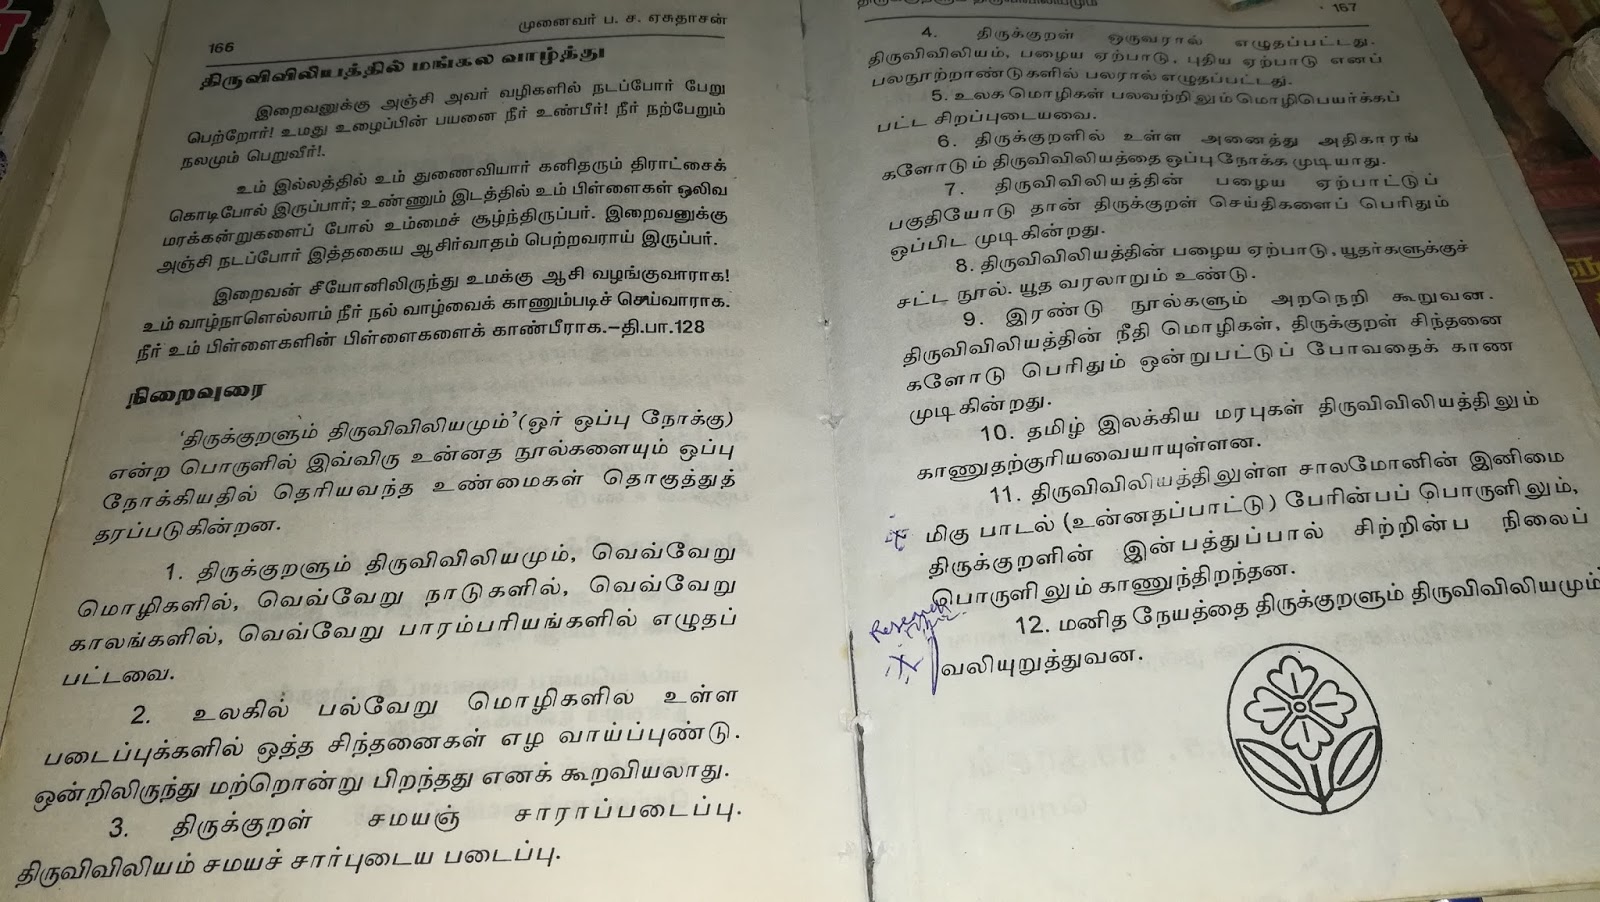 166
முனைவர் ப. ச. ஏசுதாசன்
திருவிவிலியத்தில் மங்கல வாழ்த்து
இறைவனுக்கு அஞ்சி அவர் வழிகளில் நடப்போர் பேறு
பெற்றோர்! உமது உழைப்பின் பயனை நீர் உண்பீர்! நீர் நற்பேறும்
நலமும் பெறுவீர்!.
உம் இல்லத்தில் உம் துணைவியார் கனிதரும் திராட்சைக்
கொடிபோல் இருப்பார்; உண்ணும் இடத்தில் உம் பிள்ளைகள் ஒலிவ
மரக்கன்றுகளைப் போல் உம்மைச் சூழ்ந்திருப்பர். இறைவனுக்கு
அஞ்சி நடப்போர் இத்தகைய ஆசிர்வாதம் பெற்றவராய் இருப்பர்.
இறைவன் சீயோனிலிருந்து உமக்கு ஆசி வழங்குவாராக!
உம் வாழ்நாளெல்லாம் நீர் நல் வாழ்வைக் காணும்படிச் செய்வாராக.
நீர் உம் பிள்ளைகளின் பிள்ளைகளைக் காண்பீராக.–தி.பா.128
நிறைவுரை
‘திருக்குறளும் திருவிவிலியமும்’ (ஓர் ஒப்பு நோக்கு)
என்ற பொருளில் இவ்விரு உன்னத நூல்களையும் ஒப்பு
நோக்கியதில் தெரியவந்த உண்மைகள் தொகுத்துத்
தரப்படுகின்றன.
1. திருக்குறளும் திருவிவிலியமும், வெவ்வேறு
மொழிகளில், வெவ்வேறு நாடுகளில், வெவ்வேறு
காலங்களில், வெவ்வேறு பாரம்பரியங்களில் எழுதப்
பட்டவை.
2. உலகில் பல்வேறு மொழிகளில் உள்ள
படைப்புக்களில் ஒத்த சிந்தனைகள் எழ வாய்ப்புண்டு.
ஒன்றிலிருந்து மற்றொன்று பிறந்தது எனக் கூறவியலாது.
3. திருக்குறள் சமயஞ் சாராப்படைப்பு.
திருவிவிலியம் சமயச் சார்புடைய படைப்பு.
திருக்குறளும் திருவிவிலியமும்
167
4. திருக்குறள் ஒருவரால் எழுதப்பட்டது.
திருவிவிலியம், பழைய ஏற்பாடு, புதிய ஏற்பாடு எனப்
பலநூற்றாண்டுகளில் பலரால் எழுதப்பட்டது.
5. உலக மொழிகள் பலவற்றிலும் மொழிபெயர்க்கப்
பட்ட சிறப்புடையவை.
6. திருக்குறளில் உள்ள அனைத்து அதிகாரங்
களோடும் திருவிவிலியத்தை ஒப்புநோக்க முடியாது.
7. திருவிவிலியத்தின் பழைய ஏற்பாட்டுப்
பகுதியோடு தான் திருக்குறள் செய்திகளைப் பெரிதும்
ஒப்பிட முடிகின்றது.
8. திருவிவிலியத்தின் பழைய ஏற்பாடு, யூதர்களுக்குச்
சட்ட நூல். யூத வரலாறும் உண்டு.
9. இரண்டு நூல்களும் அறநெறி கூறுவன.
திருவிவிலியத்தின் நீதி மொழிகள், திருக்குறள் சிந்தனை
களோடு பெரிதும் ஒன்றுபட்டுப் போவதைக் காண
முடிகின்றது.
10. தமிழ் இலக்கிய மரபுகள் திருவிவிலியத்திலும்
காணுதற்குரியவையாயுள்ளன.
11. திருவிவிலியத்திலுள்ள சாலமோனின் இனிமை
மிகு பாடல் (உன்னதப்பாட்டு) பேரின்பப் பொருளிலும்,
திருக்குறளின் இன்பத்துப்பால் சிற்றின்ப நிலைப்
பொருளிலும் காணுந்திறந்தன.
12. மனித நேயத்தை திருக்குறளும் திருவிவிலியமும்
வலியுறுத்துவன.